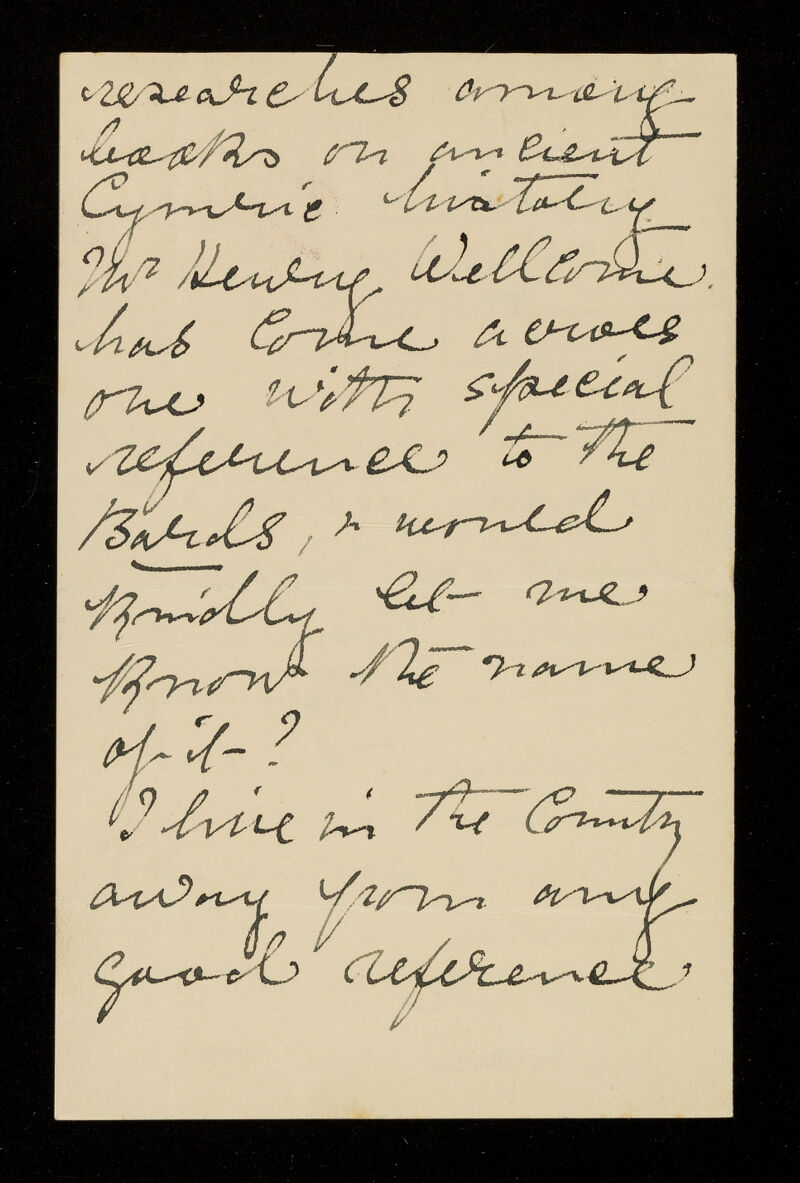 researches among
books on ancient
Cymric history
Mr Henry Wellcome
has come across
one with special
reference to the
Bards, & would
kindly let me
know the name
of it?
I live in the Country
away from any
good reference